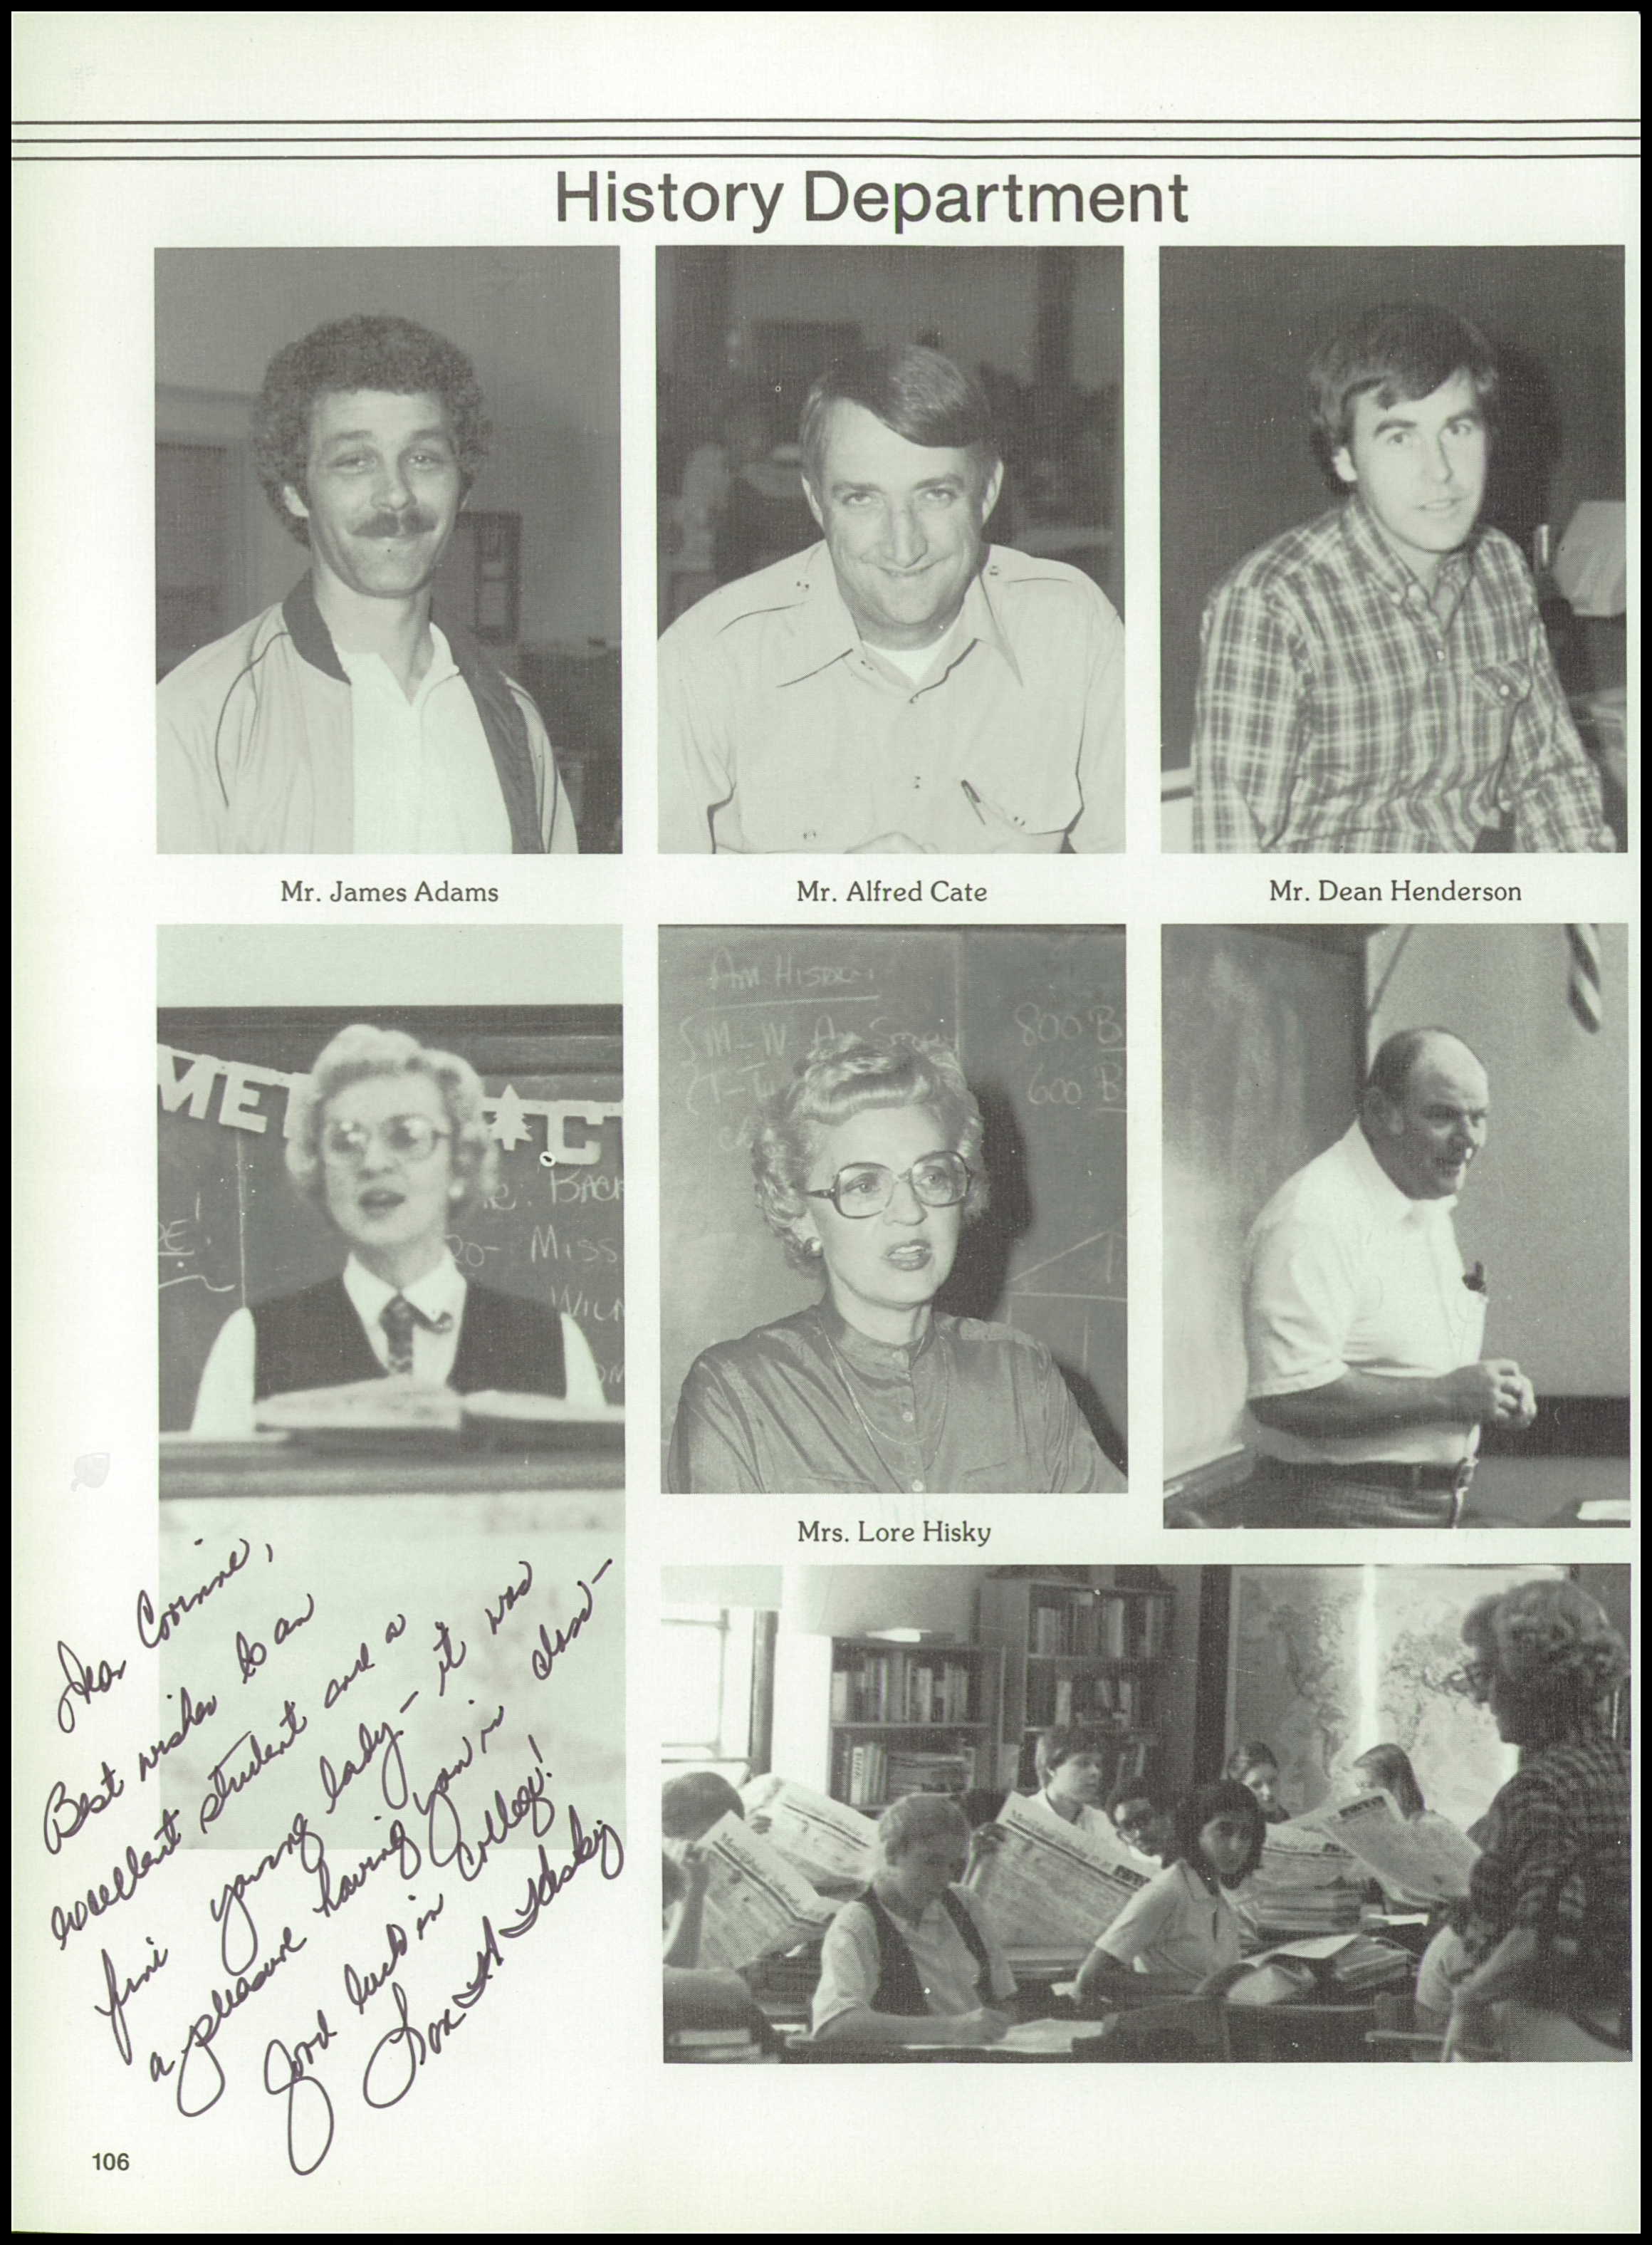 History Department
Mr. James Adams
Mr. Alfred Cate
Mr. Dean Henderson
MET
*C
E!
BACK
20- MISS
WILM
AM HISTORY
800 B
600 B
Mrs. Lore Hisky
Dear Corinne,
Best wishes to an
excellent student and a
fine young lady - it was
a pleasure having you in class -
Good luck in college!
Lore H Hisky
106